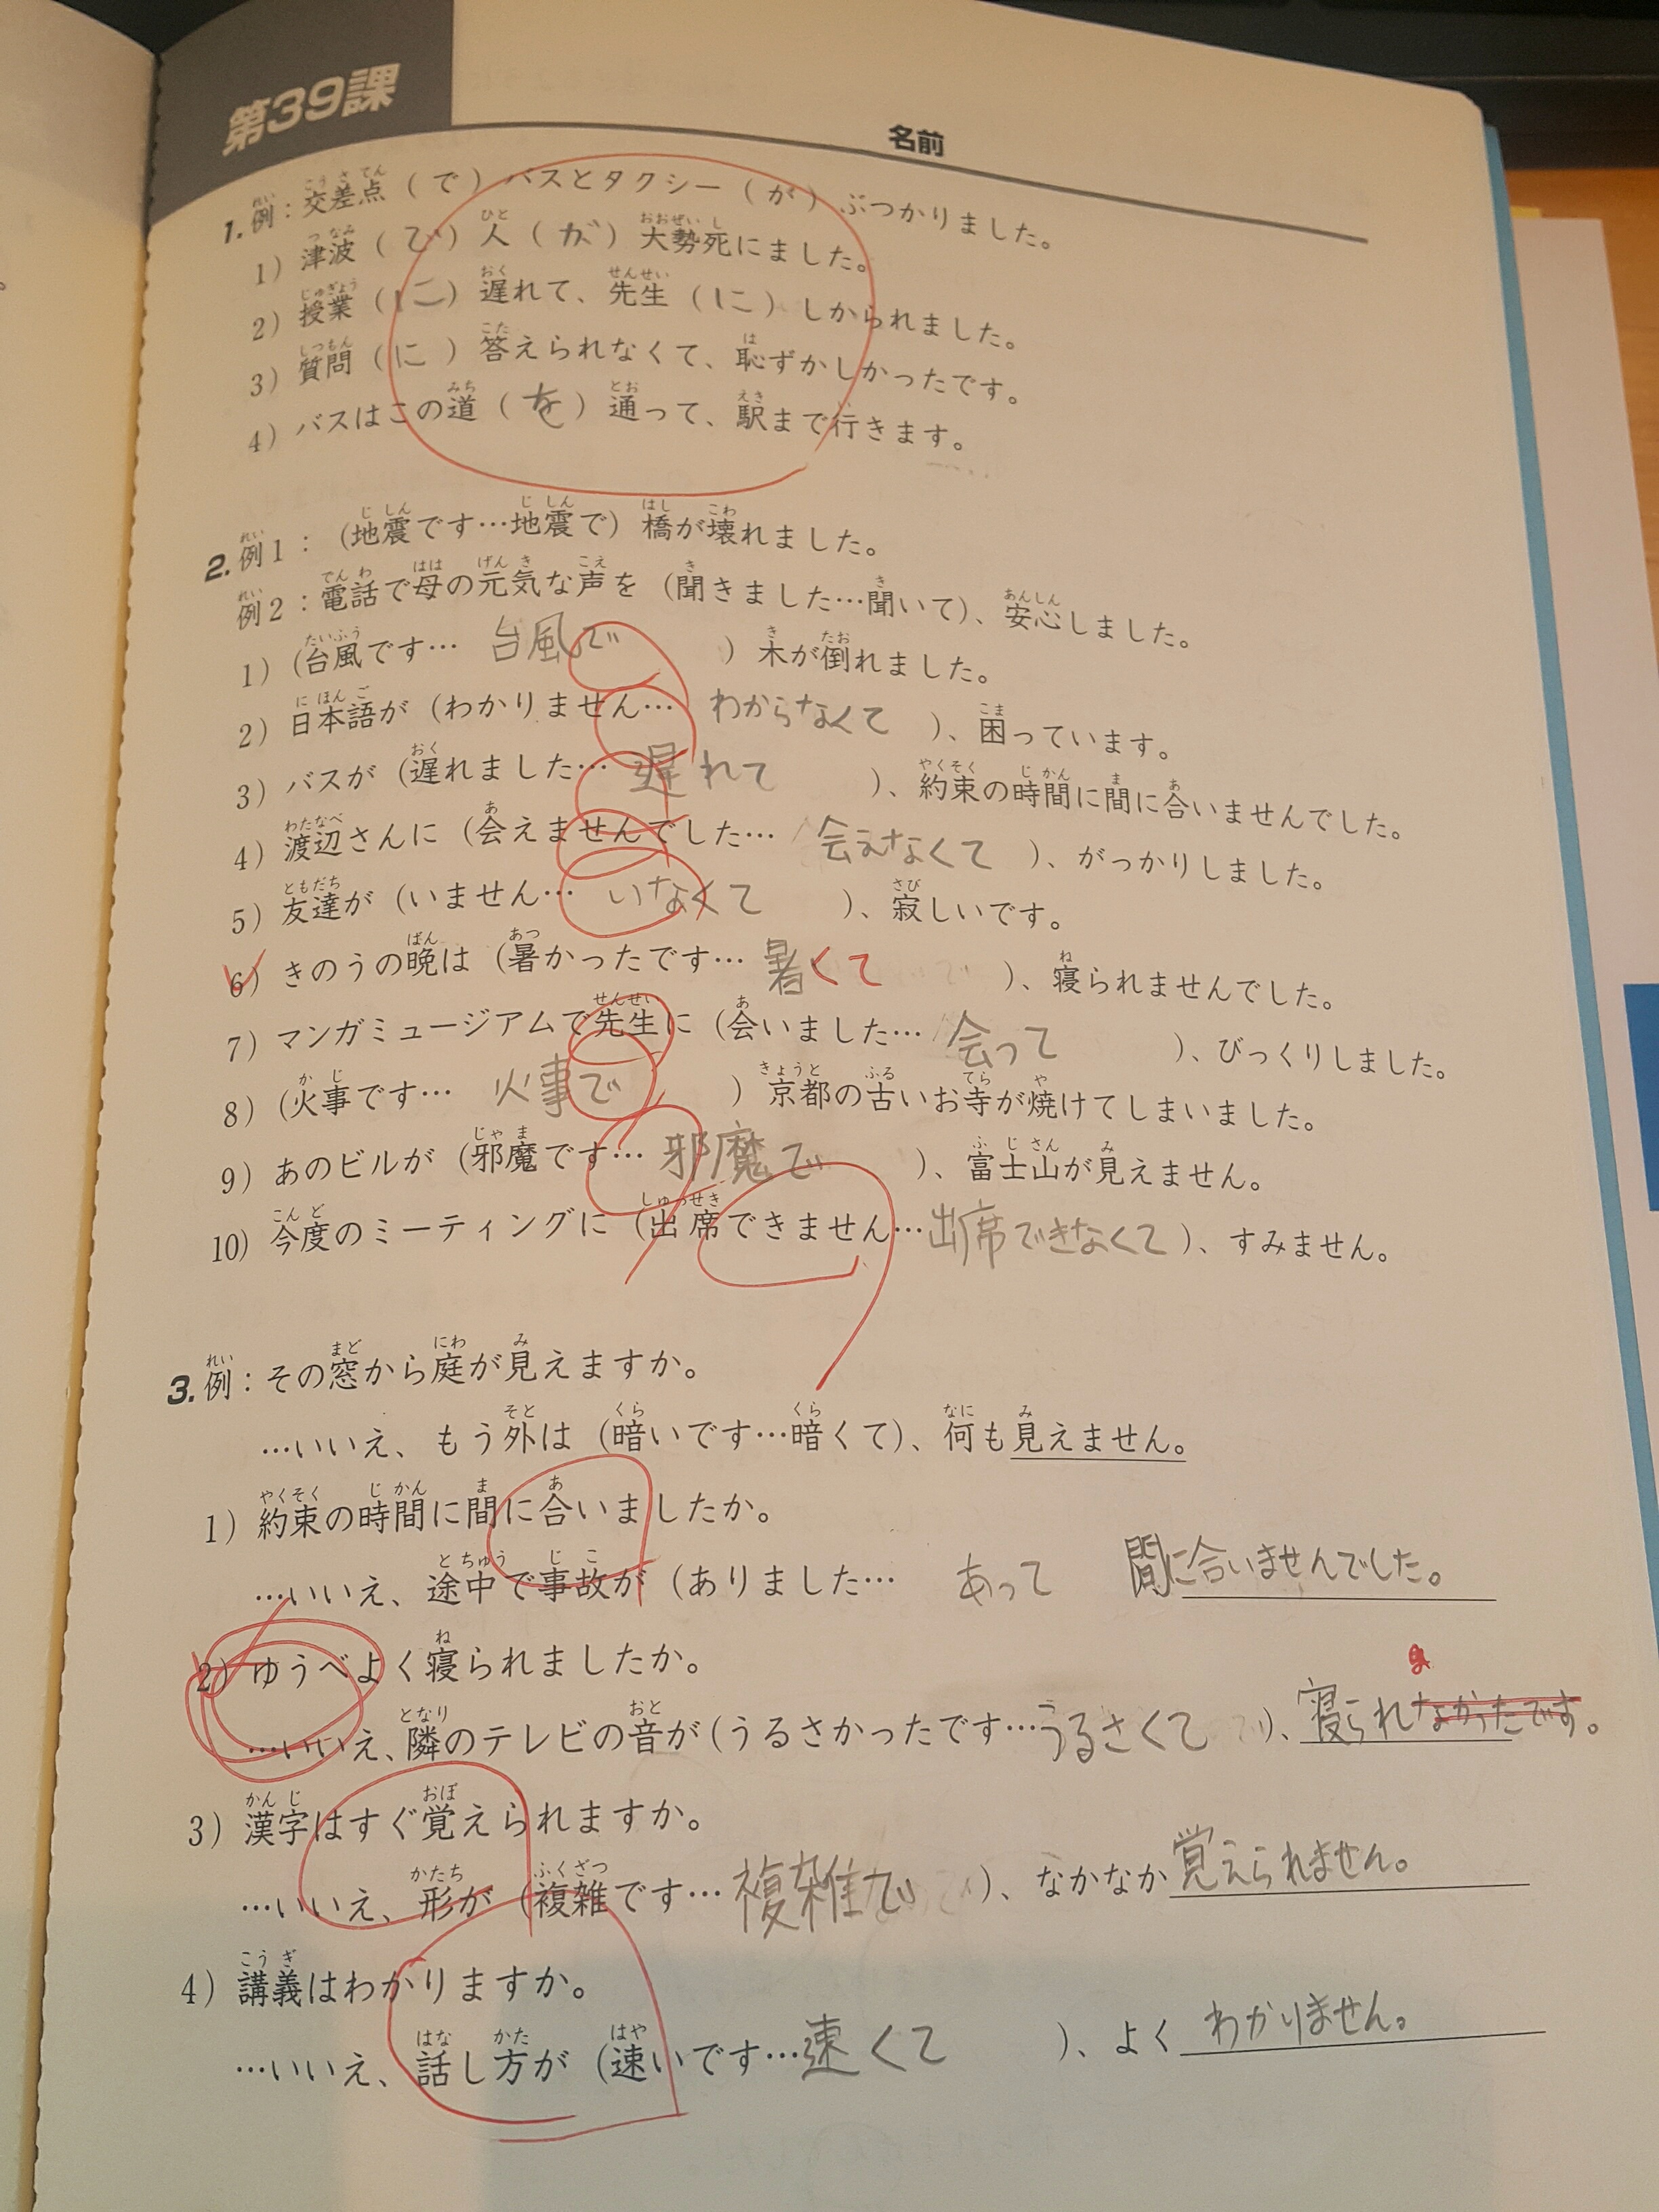 第39課
名前
1. 例：交差点（で）バスとタクシー（が）ぶつかりました。
1）津波（で）人（が）大勢死にました。
2）授業（に）遅れて、先生（に）しかられました。
3）質問（に）答えられなくて、恥ずかしかったです。
4）バスはこの道（を）通って、駅まで行きます。
2. 例1：（地震です…地震で）橋が壊れました。
例2：電話で母の元気な声を（聞きました…聞いて）、安心しました。
1）（台風です… 台風で ）木が倒れました。
2）日本語が（わかりません… わからなくて ）、困っています。
3）バスが（遅れました… 遅れて ）、約束の時間に間に合いませんでした。
4）渡辺さんに（会えませんでした… 会えなくて ）、がっかりしました。
5）友達が（いません… いなくて ）、寂しいです。
6）きのうの晩は（暑かったです… 暑くて ）、寝られませんでした。
7）マンガミュージアムで先生に（会いました… 会って ）、びっくりしました。
8）（火事です… 火事で ）京都の古いお寺が焼けてしまいました。
9）あのビルが（邪魔です… 邪魔で ）、富士山が見えません。
10）今度のミーティングに（出席できません…出席できなくて）、すみません。
3. 例：その窓から庭が見えますか。
…いいえ、もう外は（暗いです…暗くて）、何も見えません。
1）約束の時間に間に合いましたか。
…いいえ、途中で事故が（ありました… あって 間に合いませんでした。
2）ゆうべよく寝られましたか。
…いいえ、隣のテレビの音が（うるさかったです…うるさくて ）、寝られなかったです。
3）漢字はすぐ覚えられますか。
…いいえ、形が（複雑です…複雑で ）、なかなか覚えられません。
4）講義はわかりますか。
…いいえ、話し方が（速いです…速くて ）、よく わかりません。